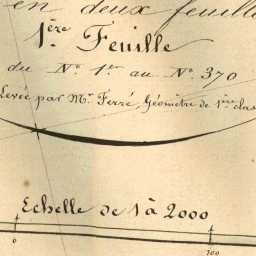 en deux feuille
1ère Feuille
du No. 1er au No. 370
Levée par Mr. Ferré, Géomètre de 1ère clas
Echelle de 1 à 2000
0 100